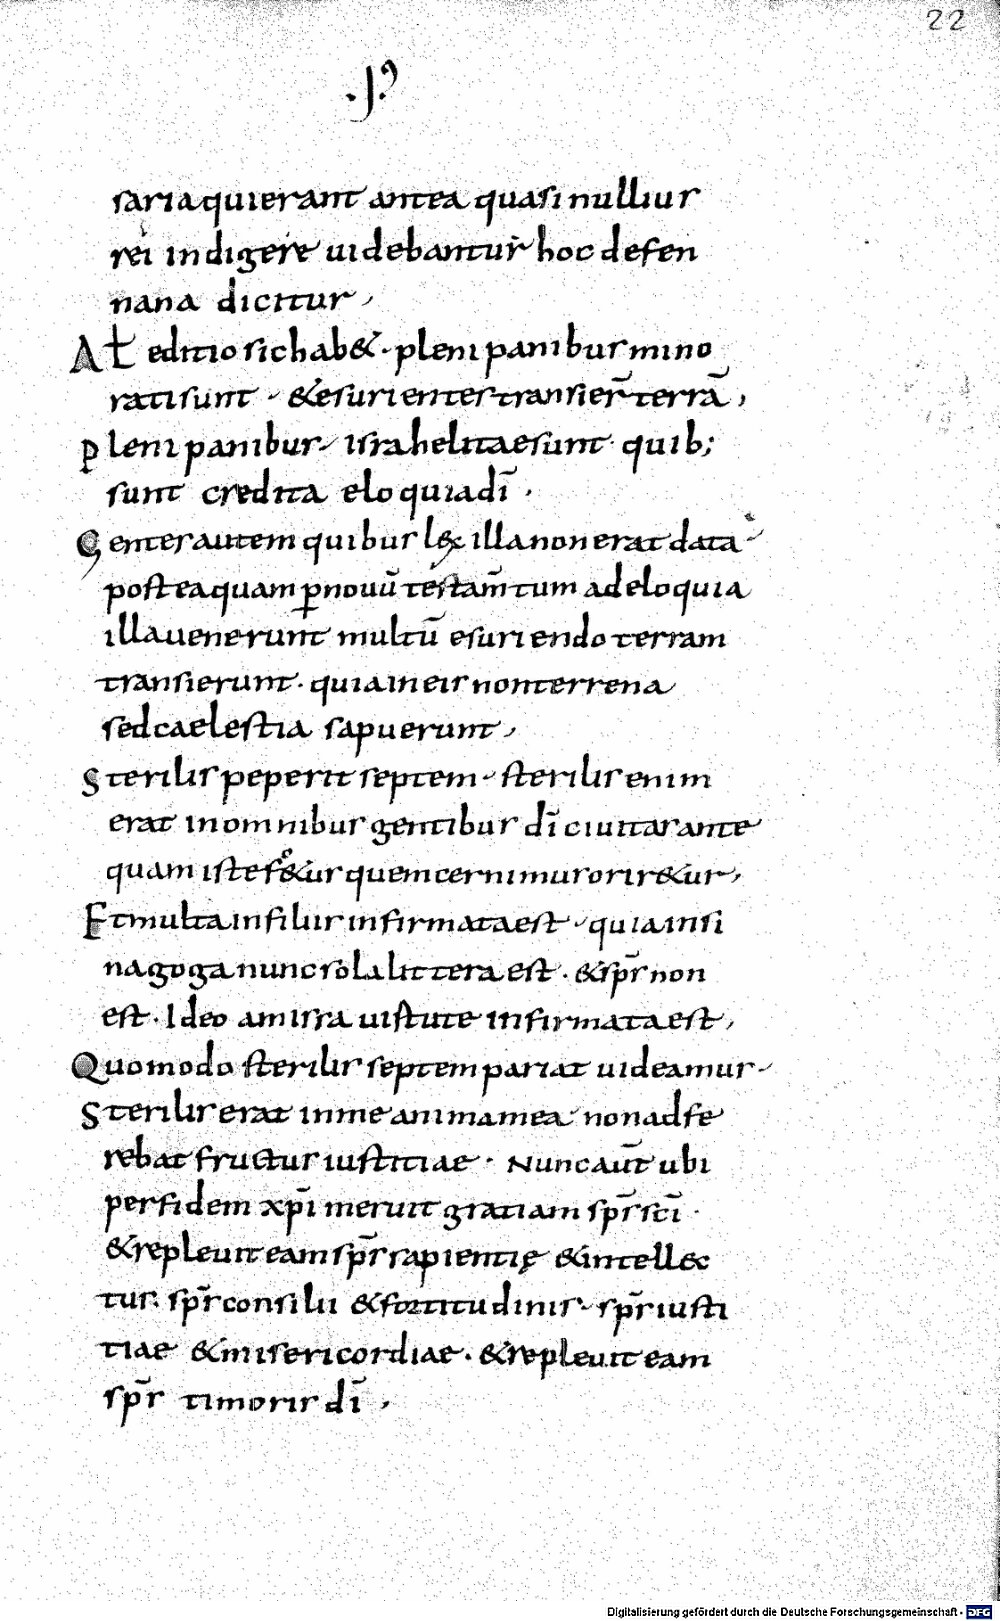 22
saria qui erant antea quasi nullius
rei indigere uidebantur hoc defen
nana dicitur,
Alt editio sic hab&. pleni panibus mino
rati sunt. & esurientes transier̄ terrā,
pleni panibus. israhelitae sunt quib;
sunt credita eloquia dī.
Gentes autem quibus lex illa non erat data
postea quam ꝑ nouū testam̄tum ad eloquia
illa uenerunt multū esuriendo terram
transierunt. quia in eis non terrena
sed caelestia sapuerunt,
Sterilis peperit septem. sterilis enim
erat in omnibus gentibus dī ciuitas ante
quam iste foetus quem cernimus orir&ur,
Et multa in filiis infirmata est. quia in si
nagoga nunc sola littera est. & sp̄s non
est. Ideo amissa uistute infirmata est,
Quomodo sterilis septem pariat uideamus.
Sterilis erat in me anima mea non adfe
rebat fructus iustitiae. Nunc aūt ubi
per fidem xp̄i meruit gratiam sp̄s scī.
& repleuit eam sp̄s sapientię & intellec
tus. sp̄s consilii & fortitudinis. sp̄s iusti
tiae & misericordiae. & repleuit eam
sp̄s timoris dī,
Digitalisierung gefördert durch die Deutsche Forschungsgemeinschaft - DFG